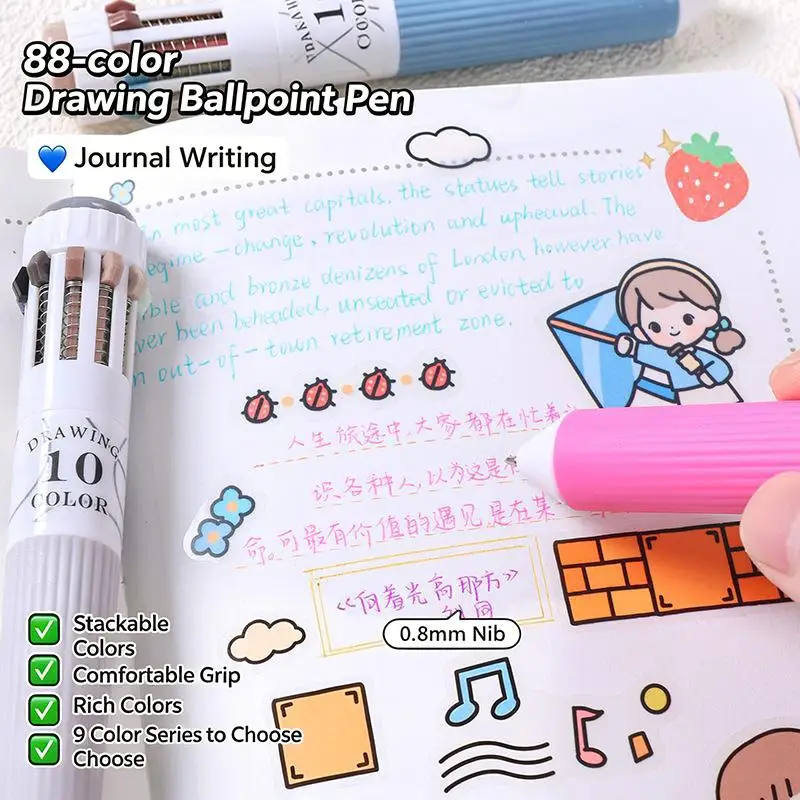 88-color
Drawing Ballpoint Pen
💙 Journal Writing
COLOR
n most great capitals, the statues tell stories
egime - change, revolution and upheaval. The
ble and bronze denizens of London however have
ver been beheaded, unseated or evicted to
n out-of-town retirement zone.
DRAWING
10
COLOR
人生旅途中,大家都在忙着
识各种人,以为这是
命。可最有价值的遇见,是在某
《向着光亮那方》
0.8mm Nib
✅ Stackable
Colors
✅ Comfortable Grip
✅ Rich Colors
✅ 9 Color Series to Choose
Choose